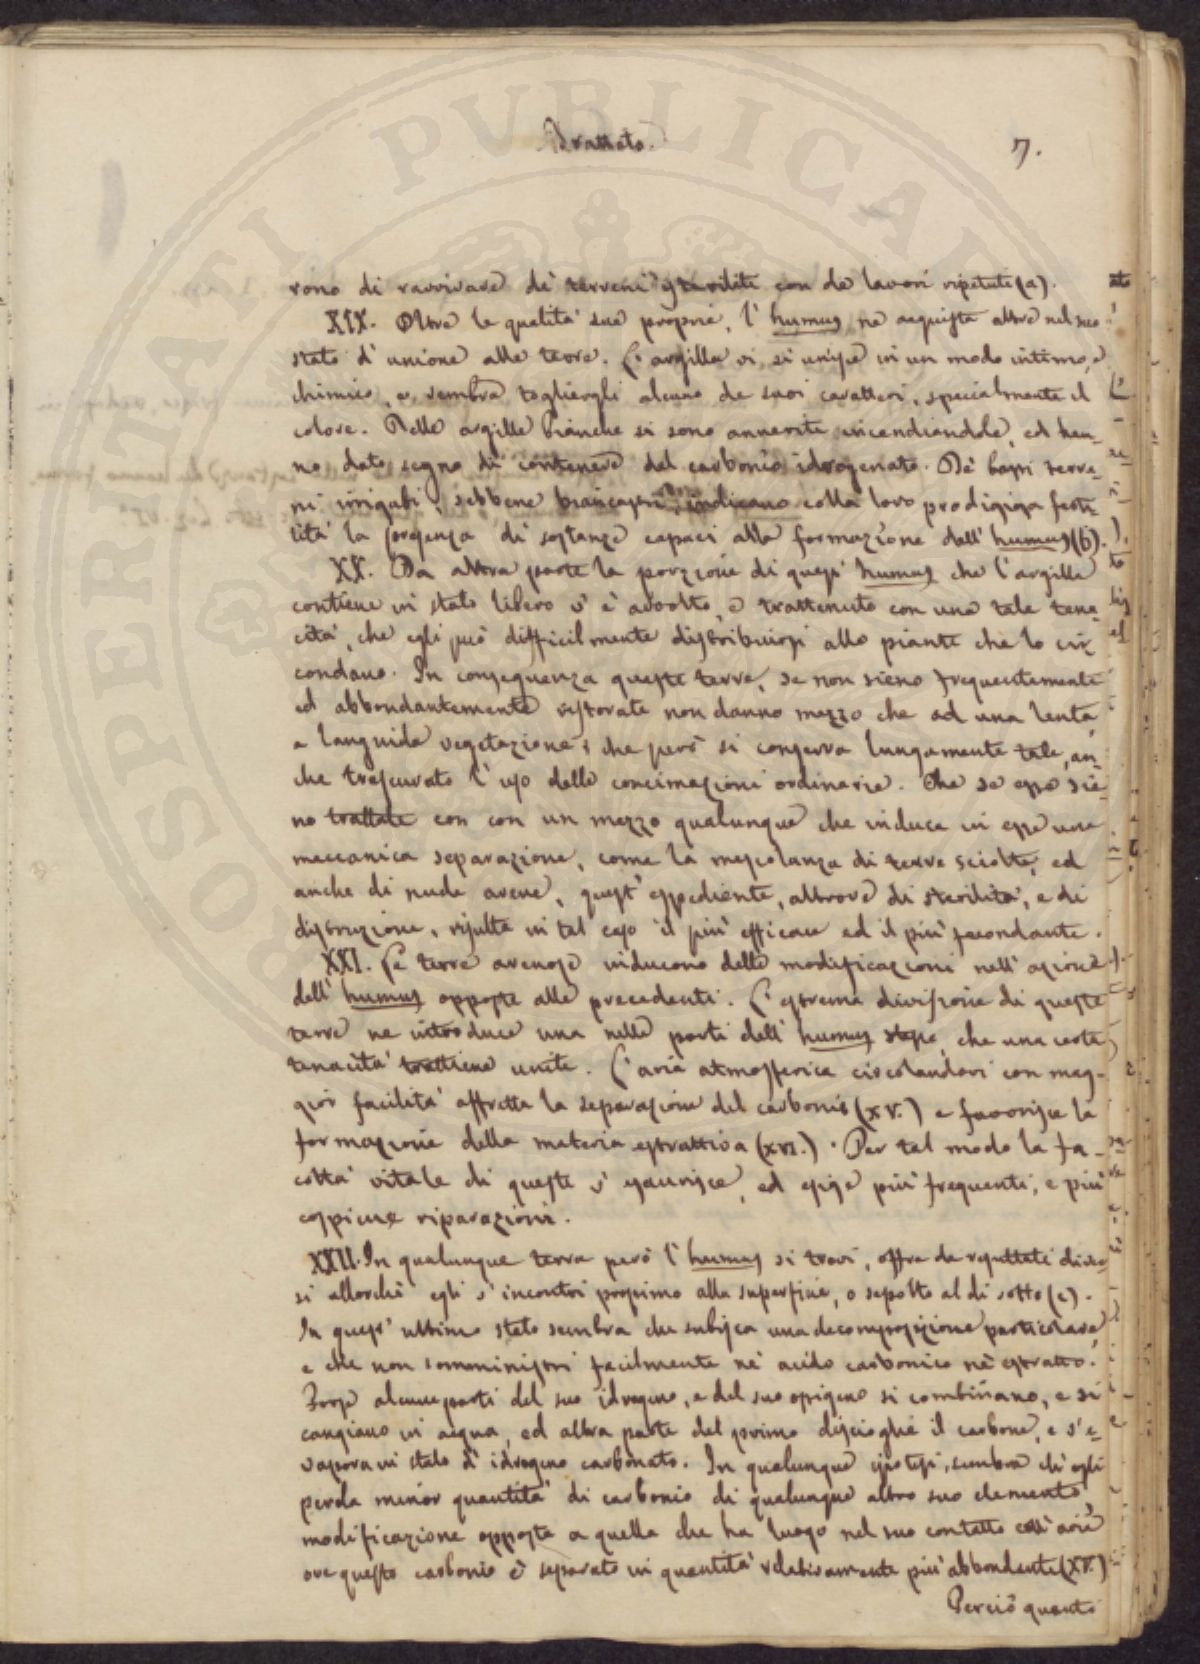 Trattato.
7.
rono di ravvivare de' terreni steriliti con de' lavori ripetuti (a).
XIX. Oltre le qualità sue proprie, l'humus ne acquista altre nel suo
stato d'unione alle terre. L'argilla vi si unisce in un modo intimo, e
chimico, e sembra togliergli alcuno de suoi caratteri, specialmente il
colore. Delle argille bianche si sono annerite incendiandole, ed han-
no dato segno di contenere del carbonio idrogenato. De' bassi terre-
ni irrigati, sebbene biancastri, indicano colla loro prodigiosa ferti-
lità la presenza di sostanze capaci alla formazione dell'humus (b).
XX. Da altra parte la porzione di quest'humus che l'argilla
contiene in stato libero v'è avvolto, e trattenuto con una tale tena-
cità, che egli può difficilmente distribuirsi alle piante che lo cir-
condano. In conseguenza queste terre, se non sieno frequentemente
ed abbondantemente ristorate non danno mezzo che ad una lenta
e languida vegetazione, che però si conserva lungamente tale, an-
che trascurato l'uso delle concimazioni ordinarie. Che se esse sie-
no trattate con con un mezzo qualunque che induca in esse una
meccanica separazione, come la mescolanza di terre sciolte, ed
anche di nude arene, quest'espediente, altrove di sterilità, e di
distruzione, risulta in tal caso il più efficace ed il più fecondante.
XXI. Le terre arenose inducono delle modificazioni nell'azione
dell'humus opposte alle precedenti. L'estrema divisione di queste
terre ne introduce una nelle parti dell'humus stesso, che una certa
tenacità trattiene unite. L'aria atmosferica circolandovi con mag-
gior facilità affretta la separazione del carbonio (XV.) e favorisce la
formazione della materia estrattiva (XVI.). Per tal modo la fa-
coltà vitale di queste s'esaurisce, ed esige più frequenti, e più
copiose riparazioni.
XXII. In qualunque terra però l'humus si trovi, offre de resultati diver-
si allorchè egli s'incontri prossimo alla superficie, o sepolto al di sotto (c).
In quest'ultimo stato sembra che subisca una decomposizione particolare,
e che non somministri facilmente nè acido carbonico nè estratto.
Forse alcune parti del suo idrogeno, e del suo ossigeno si combinano, e si
cangiano in acqua, ed altra parte del primo discioglie il carbone, e s'e-
vapora in stato d'idrogeno carbonato. In qualunque ipotesi, sembra ch'egli
perda minor quantità di carbonio di qualunque altro suo elemento,
modificazione opposta a quella che ha luogo nel suo contatto coll'aria
ove questo carbonio è separato in quantità relativamente più abbondante (XV.)
Perciò quanto